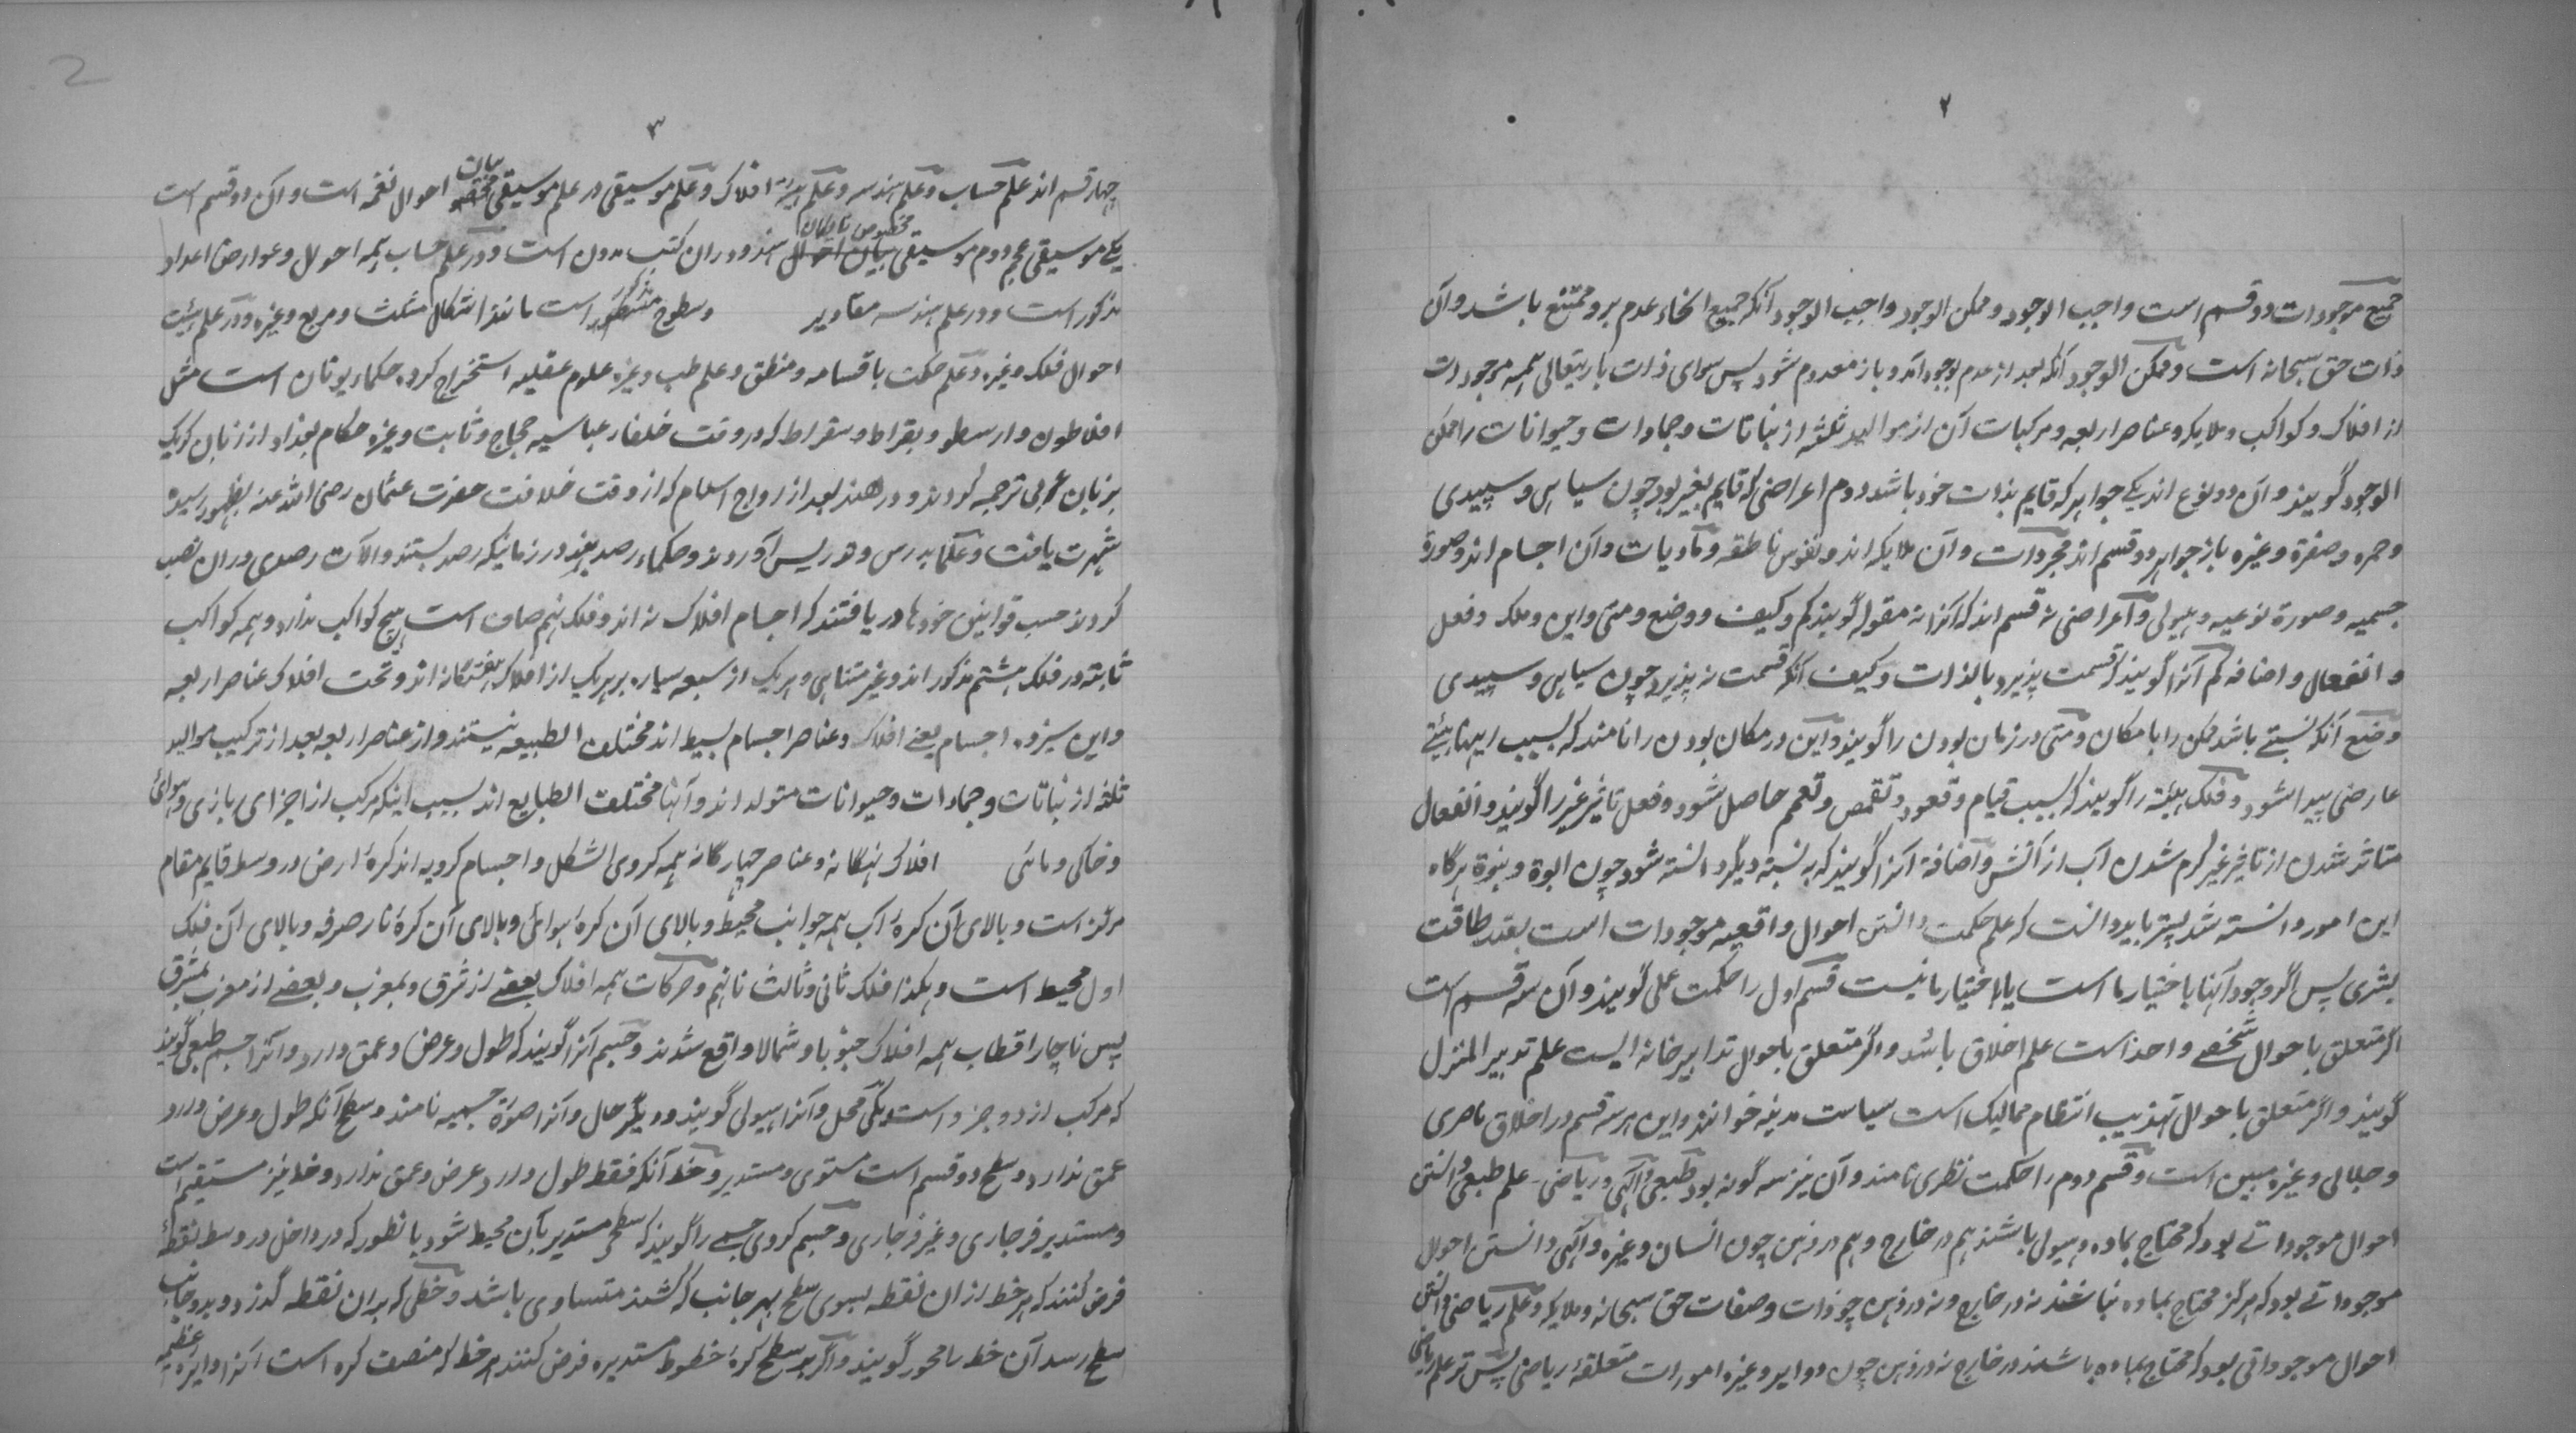 ۲
جمیع موجودات دو قسم است واجب الوجود و ممکن الوجود واجب الوجود آنکه جمیع انحاء عدم برو ممتنع باشد و آن
ذات حق سبحانه است و ممکن الوجود آنکه بعد از عدم بوجود آید و باز معدوم شود پس سوای ذات باریتعالی همه موجودات
از افلاک و کواکب و ملایکه و عناصر اربعه و مرکبات آن از موالید ثلثه از نباتات و جمادات و حیوانات را ممکن
الوجود گویند و آن دو نوع اند یکے جواهر که قایم بذات خود باشد دوم اعراضی که قایم بغیر بود چون سیاهی و سپیدی
و حمره و صفرة و غیره باز جواهر دو قسم اند مجردات و آن ملایکه اند و نفوس ناطقه و مادیات و آن اجسام اند و صورة
جسمیه و صورة نوعیه و هیولی و اعراضی نه قسم اند که آنرا نه مقوله گویند کم و کیف و وضع و متی و این و ملک و فعل
و انفعال و اضافه کم آنرا گویند که قسمت پذیرد بالذات و کیف آنکه قسمت نه پذیرد چون سیاهی و سپیدی
وضع آنکه نسبتے باشد ممکن را با مکان و متی در زمان بودن را گویند و این در مکان بودن را نامند که بسبب اینها هیئتے
عارضی پیدا شود و ملک هیئة را گویند که بسبب قیام و قعود و تقمص و تعمم حاصل شود و فعل تاثیر غیر را گویند و انفعال
متاثر شدن از تاثیر غیر گرم شدن آب از آتش و اضافة آنرا گویند که به نسبة دیگر دانسته شود چون ابوة و بنوة هرگاه
این امور دانسته شد پستر باید دانست که علم حکمت دانستن احوال واقعیه موجودات است بقدر طاقت
بشری پس اگر وجود آنها باختیار ما است یا باختیار ما نیست قسم اول را حکمت عملی گویند و آن سه قسم است
اگر متعلق باحوال شخصے واحد است علم اخلاق باشد و اگر متعلق باحوال تدابیر خانه ایست علم تدبیر المنزل
گویند و اگر متعلق باحوال تهذیب انتظام ممالیک است سیاست مدینه خوانند و این هر سه قسم در اخلاق ناصری
و جلالی و غیره مبین است و قسم دوم را حکمت نظری نامند و آن نیز سه گونه بود طبعی و الهی و ریاضی - علم طبعی دانستن
احوال موجوداتے بود که محتاج بماده و هیولی باشند هم در خارج و هم در ذهن چون انسان و غیره و الهی دانستن احوال
موجوداتے بود که هرگز محتاج بماده نباشند نه در خارج و نه در ذهن چو ذات و صفات حق سبحانه و ملایکه و علم ریاضی دانستن
احوال موجوداتی بود که محتاج بماده باشند در خارج نه در ذهن چون دوایر و غیره امورات متعلقهٔ ریاضی پس تو علم ریاضی
۳
چهار قسم اند علم حساب و علم هندسه و علم هیئة افلاک و علم موسیقی در علم موسیقی بیان احوال نغمه است و آن دو قسم است
یکے موسیقی عجم دوم موسیقی مخصوص هند و در ان کتب مدون است و در علم حساب همه احوال و عوارض اعداد
مذکور است و در علم هندسه مقادیر و سطوح مذکور است مانند اشکال مثلث و مربع و غیره و در علم هیئت
احوال فلک و غیره و علم حکمت باقسامه و منطق و علم طب و غیره علوم عقلیه استخراج کرده حکماء یونان است مثل
افلاطون و ارسطو و بقراط و سقراط که در وقت خلفاء عباسیه حجاج و ثابت و غیره حکام بغداد از زبان گریک
بزبان عربی ترجمه کردند و در هند بعد از رواج اسلام که از وقت خلافت حضرت عثمان رضی الله عنه بظهور رسید
شهرت یافت و علما بدرس و تدریس آوردند و حکماء رصد بند در زمانیکه رصد بستند و آلات رصدی در ان نصب
کردند حسب قوانین خودها دریافتند که اجسام افلاک نه اند و فلک نهم صاف است هیچ کواکب ندارد و همه کواکب
ثابته در فلک هشتم مذکور اند و غیر متناهی و هریک از سبعه سیاره بر هریک از افلاک هفتگانه اند و تحت افلاک عناصر اربعه
و این سیزده اجسام یعنے افلاک و عناصر اجسام بسیط اند مختلف الطبیعه نیستند و از عناصر اربعه بعد از ترکیب موالید
ثلثه از نباتات و جمادات و حیوانات متولد اند و آنها مختلف الطبایع اند بسبب اینکه مرکب از اجزای ناری و هوائی
و خاکی و مائی افلاک نهگانه و عناصر چهارگانه همه کروی الشکل و اجسام کرویه اند کرهٔ ارض در وسط قایم مقام
مرکز است و بالای آن کرهٔ آب همه جوانب محیط و بالای آن کرهٔ هوائی و بالای آن کرهٔ نار صرفه و بالای آن فلک
اول محیط است و هکذا فلک ثانی و ثالث تا نهم و حرکات همه افلاک بعضے از شرق بمغرب و بعضے از مغرب بمشرق
پس ناچار اقطاب همه افلاک جنوبا و شمالا واقع شدند و جسم آنرا گویند که طول و عرض و عمق دارد و آنرا جسم طبعی گویند
که مرکب از دو جزو است یکی محل و آنرا هیولی گویند و دیگر حال و آنرا صورة جسمیه نامند و سطح آنکه طول و عرض دارد
عمق ندارد و سطح دو قسم است مستوی و مستدیر و خط آنکه فقط طول دارد عرض و عمق ندارد و خط نیز مستقیم است
و مستدیر فرجاری و غیر فرجاری و جسم کروی جسمے را گویند که سطحے مستدیر بآن محیط شود بانطور که در داخل در وسط نقطهٔ
فرض کنند که هر خط از ان نقطه بسوی سطح بهر جانب که کشند متساوی باشد و خطی که بران نقطه گذرد و بدو جانب
سطح رسد آن خط را محور گویند و اگر بر سطح کرهٔ خطوط مستدیره فرض کنند هر خط که منصف کره است آنرا دایره عظیمه
2